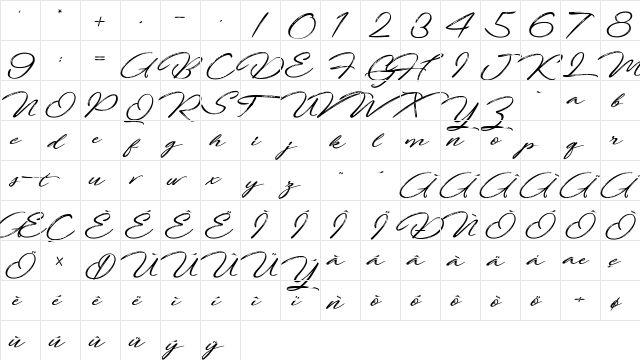 ' * + , – . / 0 1 2 3 4 5 6 7 8
9 : = A B C D E F G H I J K L M
N O P Q R S T U V W X Y Z ` a b
c d e f g h i j k l m n o p q r
s t u v w x y z ¨ ¯ À Á Â Ã Ä Å
Æ Ç È É Ê Ë Ì Í Î Ï Ð Ñ Ò Ó Ô Õ
Ö × Ø Ù Ú Û Ü Ý à á â ã ä å æ ç
è é ê ë ì í î ï ñ ò ó ô õ ö ÷ ø
ù ú û ü ý ÿ